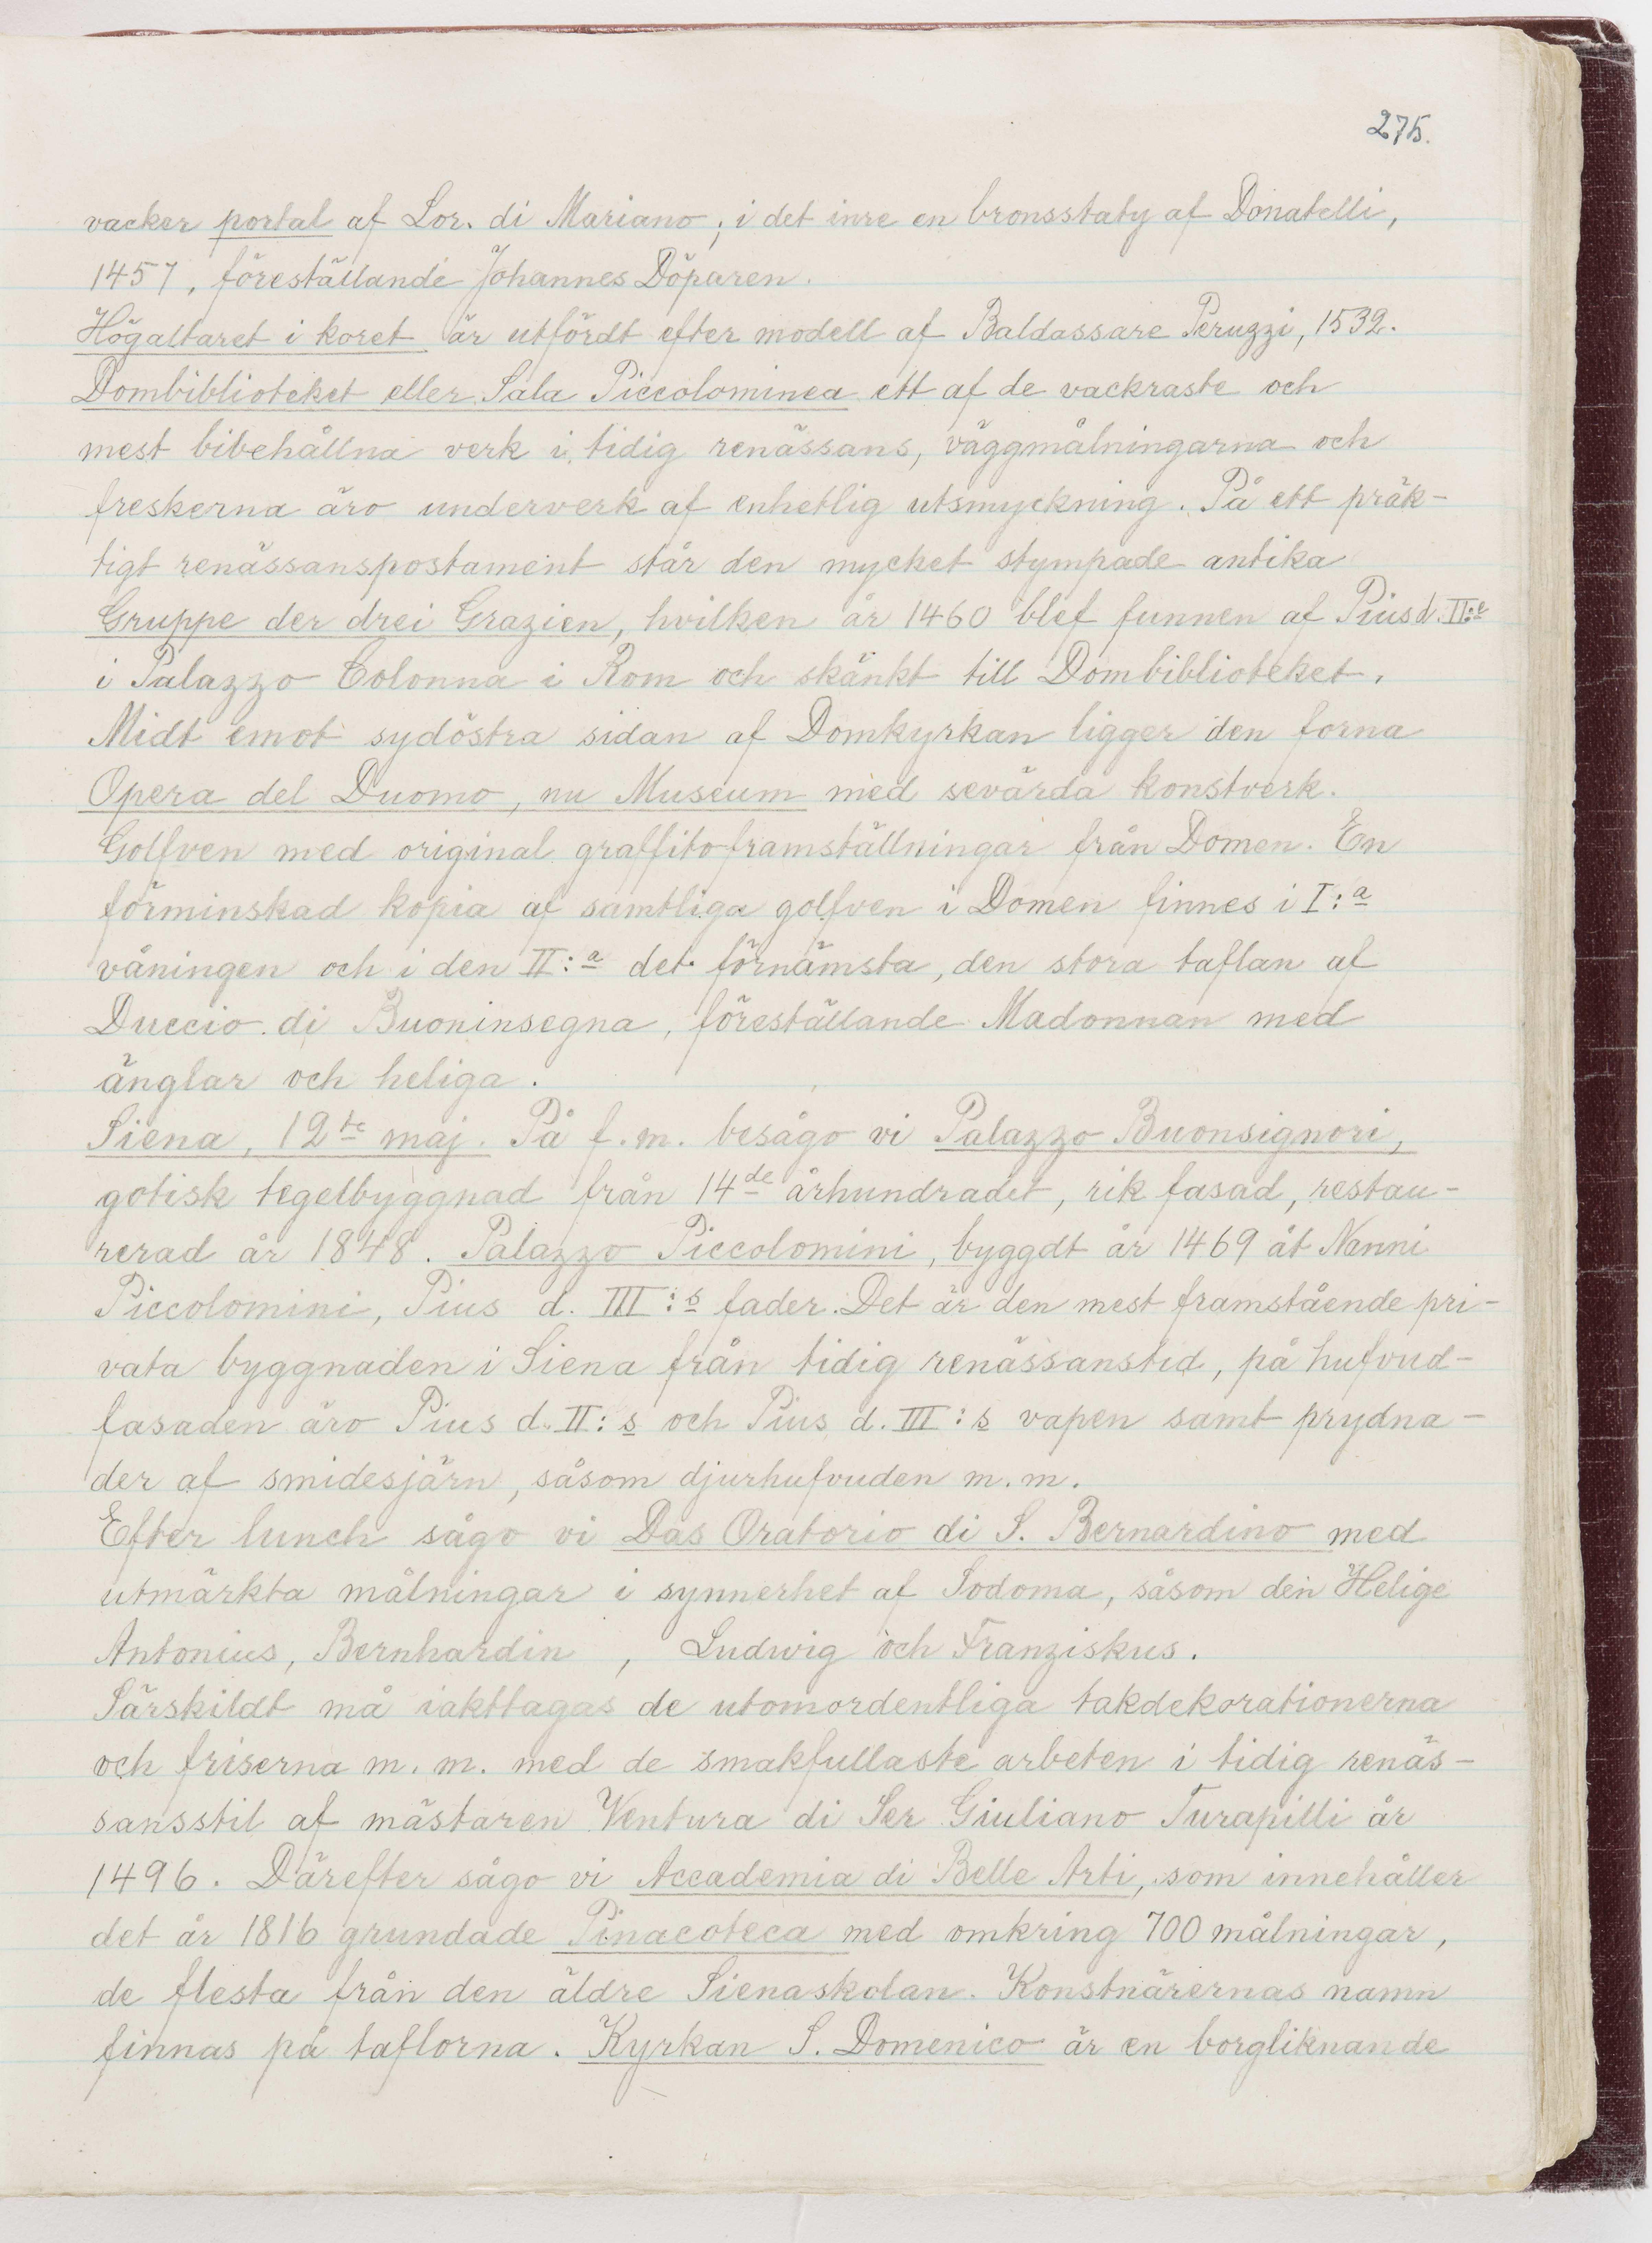 275.
vacker portal af Lor. di Mariano; i det inre en bronsstaty af Donatelli,
1457, föreställande Johannes Döparen.
Högaltaret i koret är utfördt efter modell af Baldassare Peruzzi, 1532.
Dombiblioteket eller Sala Piccolominea ett af de vackraste och
mest bibehållna verk i tidig renässans, väggmålningarna och
freskerna äro underverk af enhetlig utsmyckning. På ett präk-
tigt renässanspostament står den mycket stympade antika
Gruppe der drei Grazien, hvilken år 1460 blef funnen af Pius d. II:e
i Palazzo Colonna i Rom och skänkt till Dombiblioteket.
Midt emot sydöstra sidan af Domkyrkan ligger den forna
Opera del Duomo, nu Museum med sevärda konstverk.
Golfven med original graffitoframställningar från Domen. En
förminskad kopia af samtliga golfven i Domen finnes i I:a
våningen och i den II:a det förnämsta, den stora taflan af
Duccio di Buoninsegna, föreställande Madonnan med
änglar och heliga.
Siena, 12te maj. På f.m. besågo vi Palazzo Buonsignori,
gotisk tegelbyggnad från 14de århundradet, rik fasad, restau-
rerad år 1848. Palazzo Piccolomini, byggdt år 1469 åt Nanni
Piccolomini, Pius d. III:s fader. Det är den mest framstående pri-
vata byggnaden i Siena från tidig renässanstid, på hufvud-
fasaden äro Pius d. II:s och Pius d. III:s vapen samt prydna-
der af smidesjärn, såsom djurhufvuden m.m.
Efter lunch sågo vi Das Oratorio di S. Bernardino med
utmärkta målningar i synnerhet af Sodoma, såsom den Helige
Antonius, Bernhardin , Ludwig och Franziskus.
Särskildt må iakttagas de utomordentliga takdekorationerna
och friserna m. m. med de smakfullaste arbeten i tidig renäs-
sansstil af mästaren Ventura di Ser Giuliano Turapilli år
1496. Därefter sågo vi Accademia di Belle Arti, som innehåller
det år 1816 grundade Pinacoteca med omkring 700 målningar,
de flesta från den äldre Sienaskolan. Konstnärernas namn
finnas på taflorna. Kyrkan S. Domenico är en borgliknande